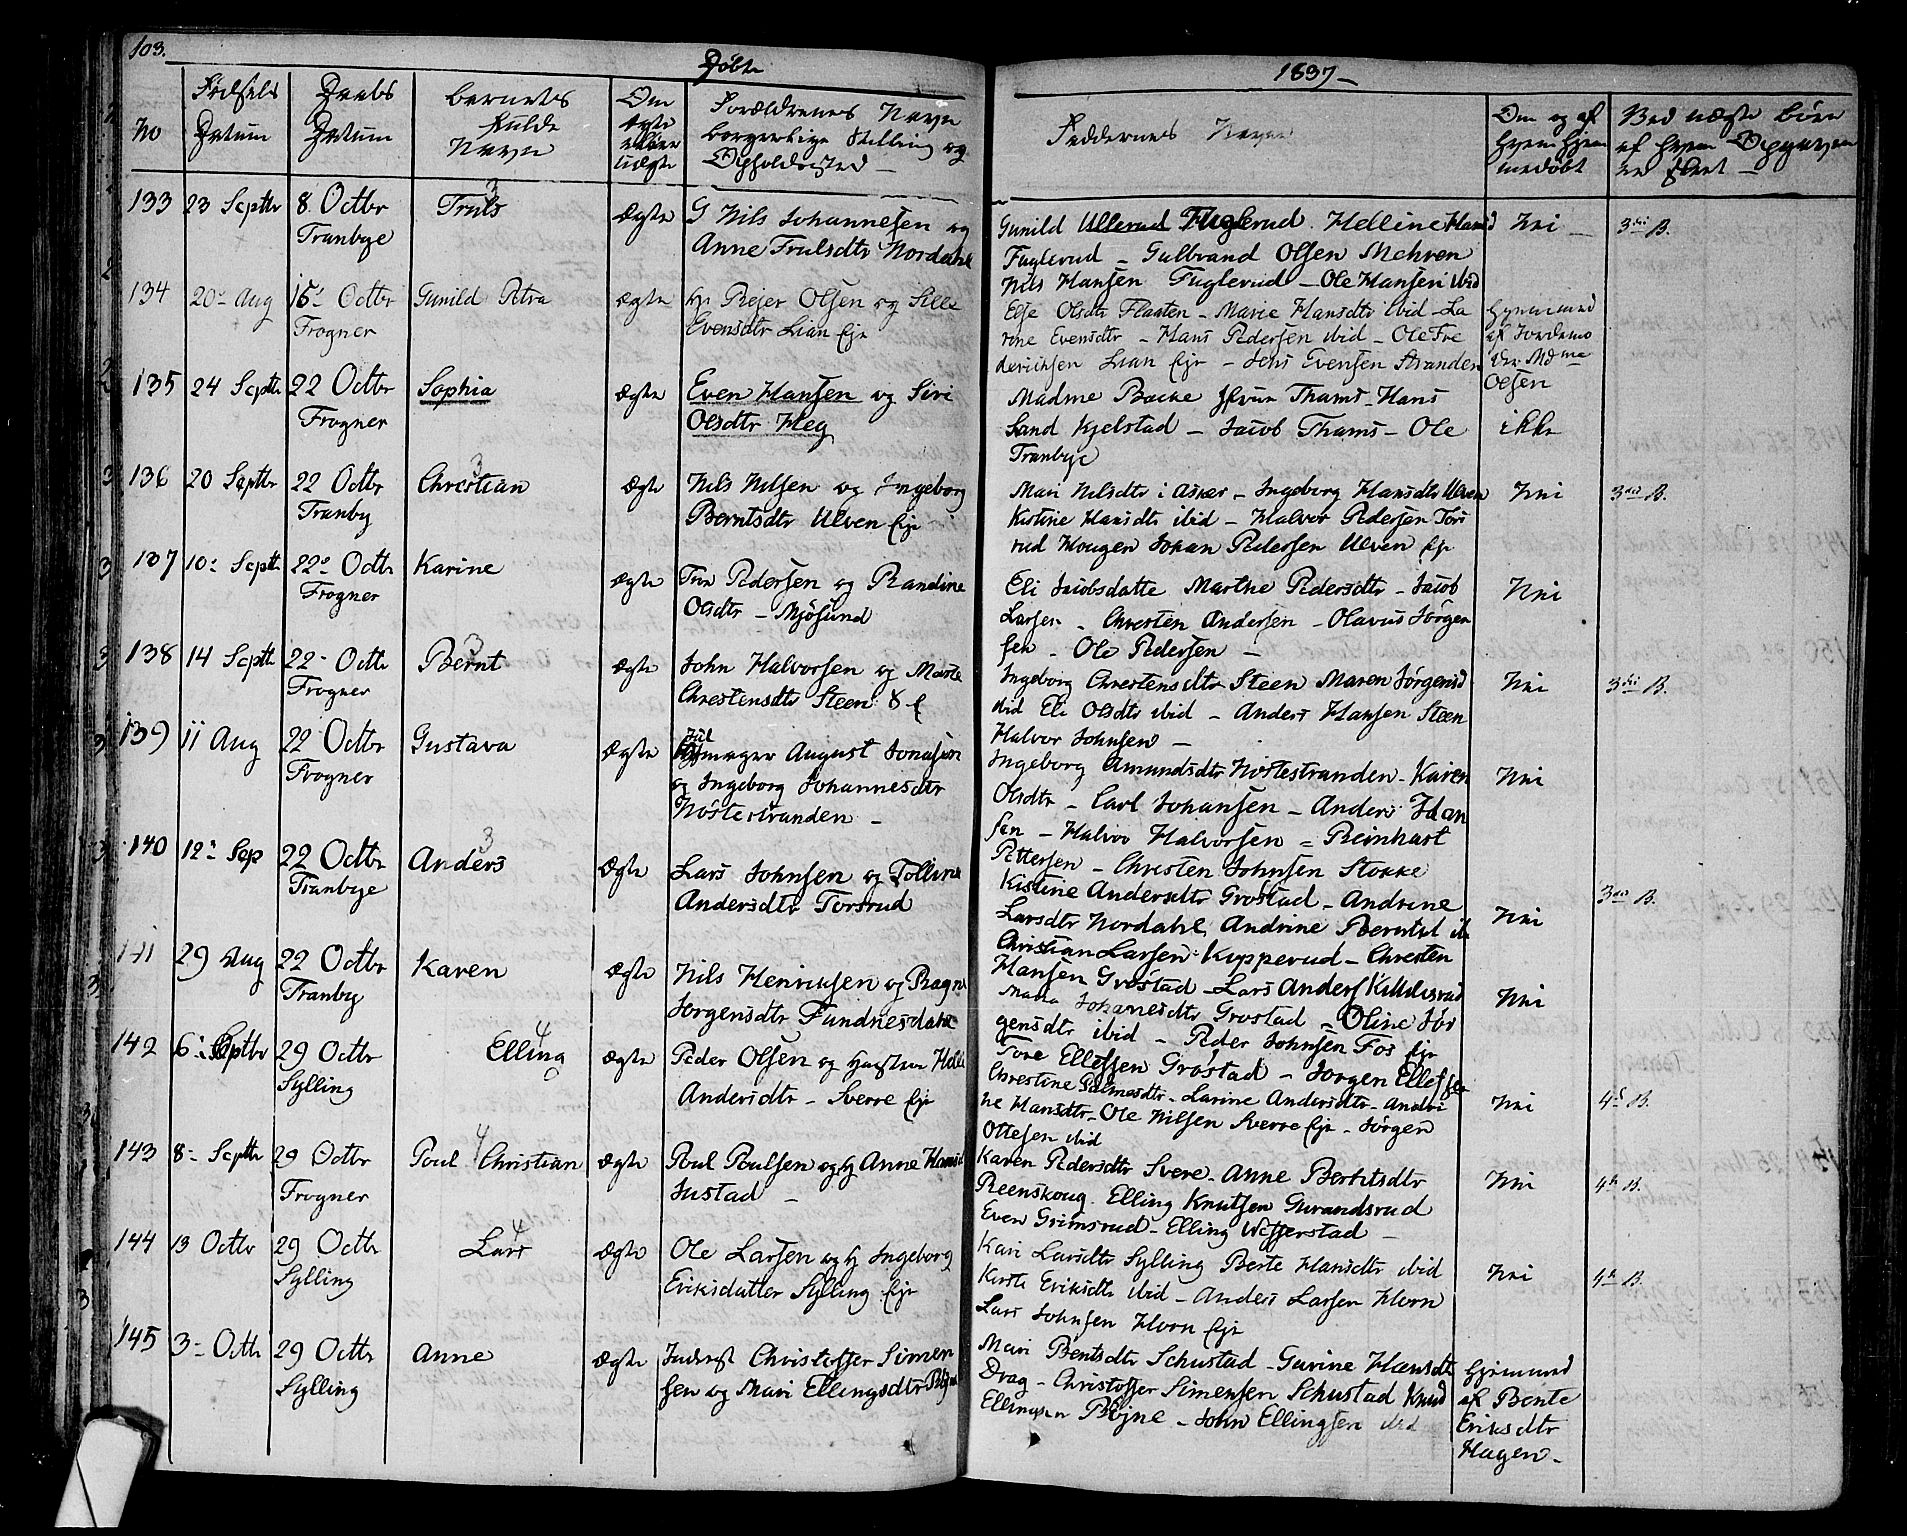 103.
Døbte
1837 -
No
Fødsels Datum
Daabs Datum
Barnets fulde Navn
Om ægte eller uægte
Forældrenes Navn borgerlige Stilling og Opholdssted -
Faddernes Navne
Om og af hvem hjemmedøbt
Ved uægte Børn af hvem Opgaven er skeet -
133 23 Septbr 8 Octbr Tranbye Truls 3 Ægte
G Nils Johannesen og
Anne Trulsdtr Nordahl
Gunild Ullerud Fuglerud. Helline Hansd
Fuglerud - Gulbrand Olsen Mehren
Nils Hansen Fuglerud - Ole Hansen ibid
Nei - 3die B.
134 20de Aug 15de Octbr Frogner Gunild Petra ægte
Hr Reier Olsen og Sille
Evensdtr Lian Eje
Else Olsdtr Flaaten - Marie Hansdtr ibid - La
rine Evensdtr - Hans Pedersen ibid - Ole Fre
derichsen Lian Eje - Jens Evensen Stranden
Hjemmed
af Jordemo
der Mdme
Olsen
135 24 Septbr 22 Octbr Frogner Sophia ægte
Even Hansen og Siri
Olsdtr Heg
Madme Backe Thams - Hans
Sand Kjelstad - Jacob Thams - Ole
Tranbye
ikke
136 20 Septbr 22 Octbr Tranby Christian 3 ægte
Nils Nilsen og Ingeborg
Berntsdtr Ulven Eje
Mari Nilsdtr i Asker - Ingeborg Hansdtr Ulven
Kistine Hansdtr ibid - Halvor Pedersen Tors
rud Hougen Johan Pedersen Ulven Eje
Nei 3die B.
137 10de Septbr 22de Octbr Frogner Karine Ægte
Pedersen og Randine
Olsdtr - Mjøsund
Eli Jacobsdatter Marthe Pedersdtr - Jacob
Larsen - Christen Andersen - Olavus Jørgen
sen - Ole Pedersen -
Nei
138 14 Septbr 22 - Octbr Frogner Bernt 3 Ægte
John Halvorsen og Marte
Christensdtr Steen
Ingeborg Christensdtr Steen Maren Jørgensd
ibid Eli Olsdtr ibid - Anders Hansen Steen
Halvor Johnsen -
Nei 3die B.
139 11 Aug 22 Octbr Frogner Gustava Ægte
August Jonasson
og Ingeborg Johannesdtr
Nøstestranden -
Ingeborg Amundsdtr Nøstestranden - Karen
Olsdtr - Carl Johansen - Anders Han
sen - Halvor Halvorsen - Reinhart
Pettersen - Christen Johnsen Stokke
Nei
140 12te Sep 22 Octbr Tranbye Anders 3 Ægte
Lars Johnsen og Tolline
Andersdtr Torsrud
Kistine Andersdtr Grøstad - Andrine
Larsdtr Nordahl Andrine Berntsd ib
Christian Larsen Kopperud - Christen
Hansen Grøstad - Lars Anders Killdesrud
Nei 3die B.
141 29 Aug 22 Octbr Tranby Karen Ægte
Nils Henriksen og Ragne
Jørgensdtr Fundnesdahl
Maria Johanesdtr Grøstad - Oline Jør
gensdtr ibid - Peder Johnsen Fos Eje
Tore Ellefsen Grøstad - Jørgen Ellefsen
Nei
142 6te Septbr 29 Octbr Sylling Elling 4 ægte
Peder Olsen og Hustrue Helle
Andersdtr - Sverre Eje
Christine Palmesdtr - Larine Andersdtr - Andri
ne Hansdtr - Ole Nilsen Sverre Eje - Jørgen
Ottesen ibid
Nei 4d B.
143 8 - Septbr 29 Octbr Frogner Poul Christian 4 ægte
Poul Poulsen og H Anne Hansd
Justad -
Karen Pedersdtr Svere - Anne Berthsdtr
Reenskoug. Elling Knutsen Gurandsrud
Even Grimsrud - Elling Wefferstad -
Nei 4de B.
144 13 Octbr 29 Octbr Sylling Lars 4 ægte
Ole Larsen og H Ingeborg
Eriksdatter Sylling Eje
Kari Larsdtr Sylling Berte Hansdtr ibid
Kirsti Eriksdtr ibid - Anders Larsen Horn
Lars Johnsen Horn Eje
Nei 4de B.
145 3 - Octbr 29 Octbr Sylling Anne ægte
Inderst Christoffer Simen
sen og Mari Ellingsdtr
Mari Bentsdtr Schustad - Gurine Hansdtr
Drag - Christoffer Simensen Schustad Knud
Ellingsen Böjne - John Ellingsen ibid
Hjemmed
af Bente
Eriksdtr
Hagen -